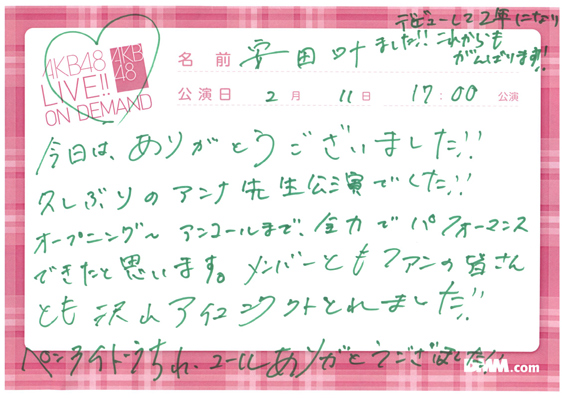 デビューして2年になり
ました!!これからも
がんばります!!
AKB48
LIVE!!
ON DEMAND
AKB
48
名前 安田叶
公演日 2月11日 17:00 公演
今日は、ありがとうございました!!
久しぶりのアンナ先生公演でした!!
オープニング〜アンコールまで、全力でパフォーマンス
できたと思います。メンバーともファンの皆さん
とも沢山アイコンタクトとれました!!
ペンライトうちわ、コールありがとうございました!!
DMM.com